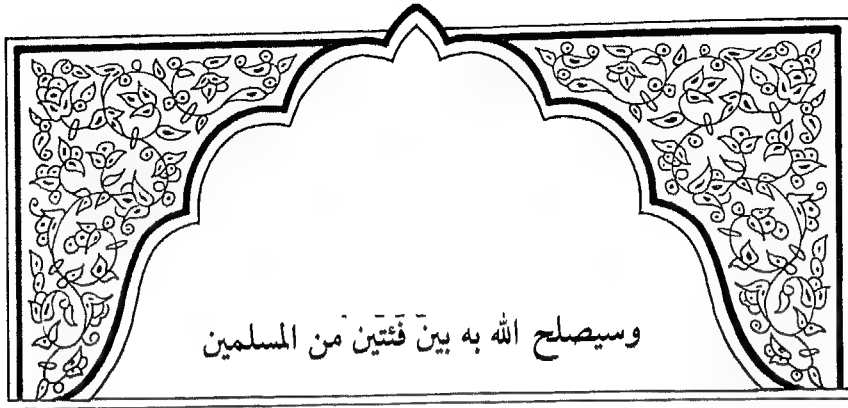 وسيصلح الله به بين فئتين من المسلمين